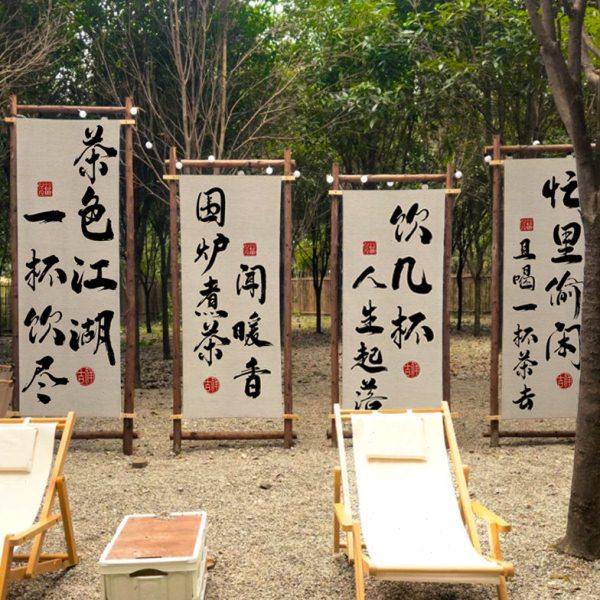 茶色江湖
一杯饮尽
围炉煮茶
闻暖香
饮几杯
人生起落
忙里偷闲
且喝一杯茶去